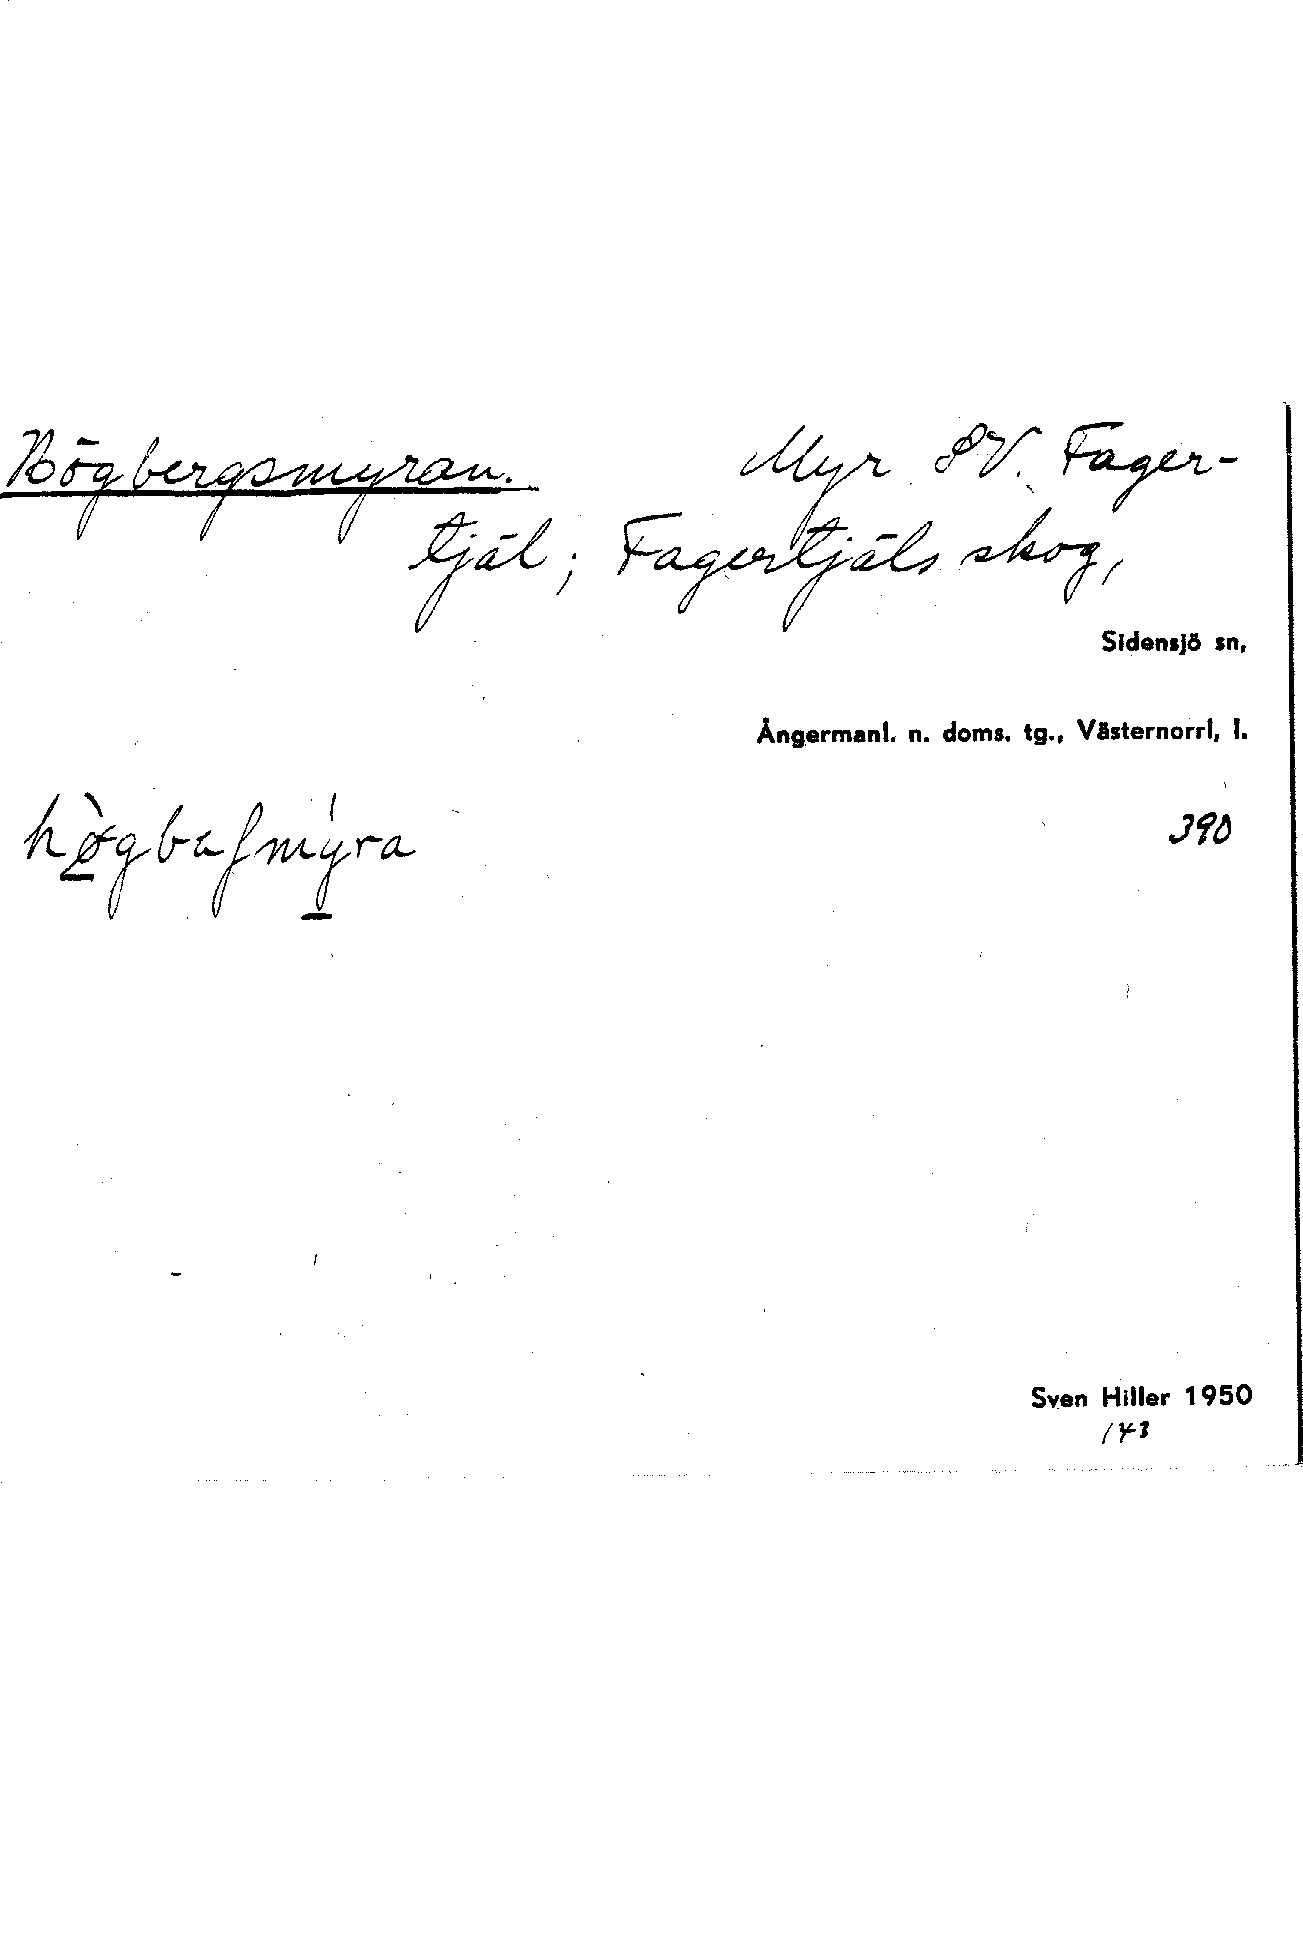 Högbergsmyran. Myr SV. Fager-
tjäl; Fagertjäls skog,
Sidensjö sn,
Ångermanl. n. doms. tg., Västernorrl, l.
390
Sven Hiller 1950
143